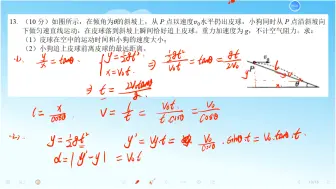 13. (10分) 如图所示,在倾角为θ的斜坡上,从P点以速度v₀水平扔出皮球,小狗同时从P点沿斜坡向
下做匀速直线运动,在皮球落到斜坡上瞬间恰好追上皮球,重力加速度为g,不计空气阻力,求:
(1) 皮球在空中的运动时间和小狗的速度大小;
(2) 小狗追上皮球前离皮球的最远距离。
(1). y/x = tanθ
{ y = ½gt²
x = v₀t
⇒ ½gt²/v₀t = tanθ = gt/2v₀
⇒ t = 2v₀tanθ/g
l = x/cosθ
v = l/t = v₀t/t·cosθ = v₀/cosθ
(2). y = ½gt²
y' = v_y t = v₀/cosθ · sinθ t = v₀ tanθ · t
d = |y' - y| = v₀t